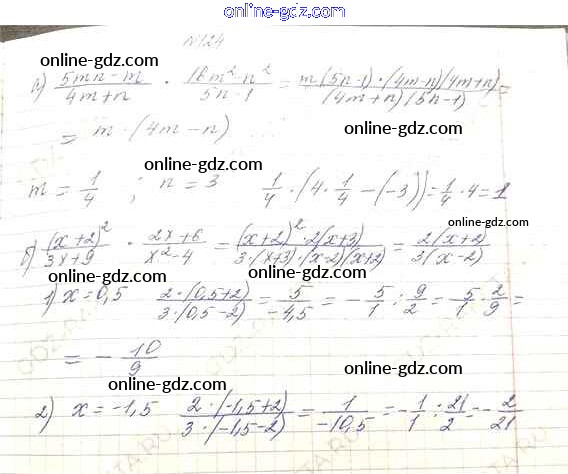 www.online-gdz.com
№124
online-gdz.com online-gdz.com
а) (5mn - m)/(4m + n) · (16m² - n²)/(5n - 1) = (m(5n-1)·(4m-n)(4m+n))/((4m+n)(5n-1)) =
online-gdz.com
= m·(4m - n)
online-gdz.com
m = 1/4 ; n = 3 1/4·(4·1/4 - (-3)) = 1/4·4 = 1
online-gdz.com
б) (x+2)²/(3x+9) · (2x+6)/(x²-4) = ((x+2)²·2(x+3))/(3·(x+3)·(x-2)(x+2)) = 2(x+2)/(3(x-2))
online-gdz.com online-gdz.com
1) x = 0,5 2·(0,5+2)/(3·(0,5-2)) = 5/(-4,5) = - 5/1 : 9/2 = - 5/1 · 2/9 =
= - 10/9
online-gdz.com
online-gdz.com
2) x = -1,5 2·(-1,5+2)/(3·(-1,5-2)) = 1/(-10,5) = - 1/1 : 21/2 = - 2/21
online-gdz.com online-gdz.com